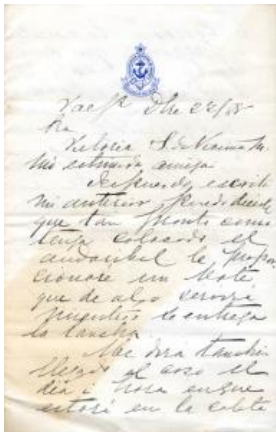 Valp Dbre 22/85
Sra
Victoria S. de Vicuña M.
Mi estimada amiga
Despues de escrita
mi anterior puedo decirle
que tan pronto como
tenga colocado el
andaribel le propor
cionaré un bote
que de algo servirá
mientras se entrega
la lancha.
Me dirá tambien
el
dia i hora en que
estará en la